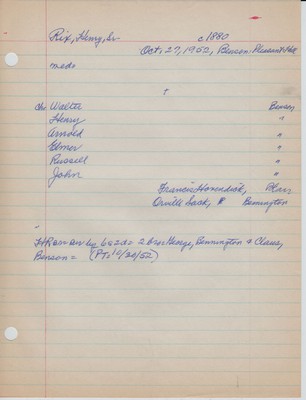 Rix, Henry, Sr. c1880
Oct. 27, 1952, Benson: Pleasant Hill
meds
+
ch: Walter Benson
Henry "
Arnold "
Elmer "
Russell "
John "
Francis Hovendick, Blair
Orville Sack, Bennington
bros: George, Bennington & Claus,
Benson = (PT: 10/30/52)